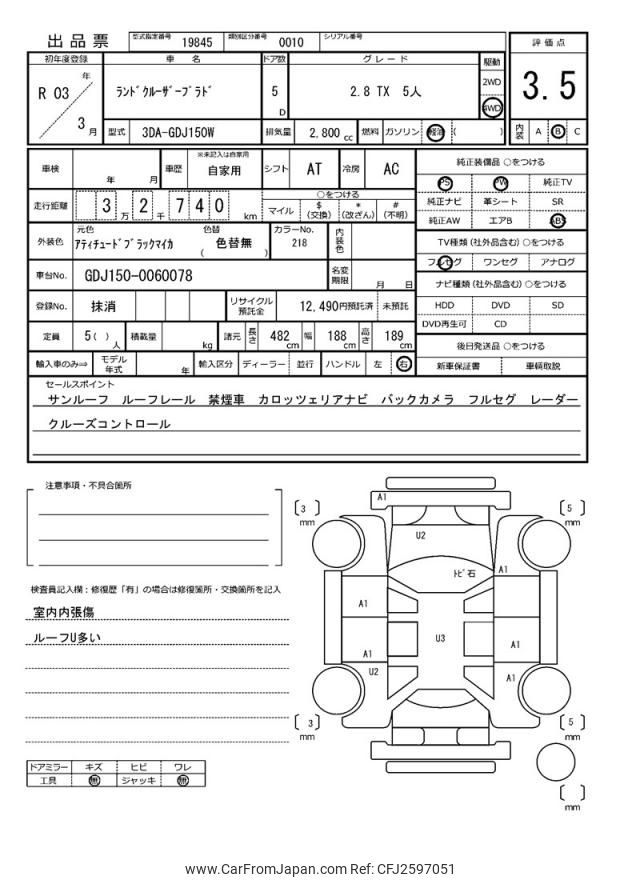 出品票 型式指定番号 19845 類別区分番号 0010 シリアル番号
評価点
3.5
初年度登録 車名 ドア数 グレード 駆動
R 03 年 3 月
ランドクルーザープラド 5 D 2.8 TX 5人 2WD 4WD
型式 3DA-GDJ150W 排気量 2,800 cc 燃料 ガソリン 軽油 ( )
内装 A B C
車検 年 月 車歴 ※未記入は自家用 自家用 シフト AT 冷房 AC
走行距離 3 万 2 千 7 4 0 km
○をつける
マイル $(交換) *(改ざん) #(不明)
外装色 元色 アティチュードブラックマイカ 色替 ( 色替無 ) カラーNo. 218 内装色
車台No. GDJ150-0060078 名変期限 月 日
登録No. 抹消 リサイクル預託金 12,490円預託済 未預託
定員 5( )人 積載量 kg 諸元 長さ 482 cm 幅 188 cm 高さ 189 cm
輸入車のみ⇒ モデル年式 年 輸入区分 ディーラー 並行 ハンドル 左 右
純正装備品 ○をつける
PS PW 純正TV
純正ナビ 革シート SR
純正AW エアB ABS
TV種類 (社外品含む) ○をつける
フルセグ ワンセグ アナログ
ナビ種類 (社外品含む) ○をつける
HDD DVD SD
DVD再生可 CD
後日発送品 ○をつける
新車保証書 車輌取説
セールスポイント
サンルーフ ルーフレール 禁煙車 カロッツェリアナビ バックカメラ フルセグ レーダー
クルーズコントロール
注意事項・不具合箇所
検査員記入欄：修復歴「有」の場合は修復箇所・交換箇所を記入
室内内張傷
ルーフU多い
ドアミラー キズ ヒビ ワレ
工具 無 ジャッキ 無
A1
[ 3 ] mm
[ 5 ] mm
U2
トビ石
A1
A1
U3
A1
A1
U2
A1
[ 3 ] mm
[ 5 ] mm
[ ] mm
www.CarFromJapan.com Ref: CFJ2597051